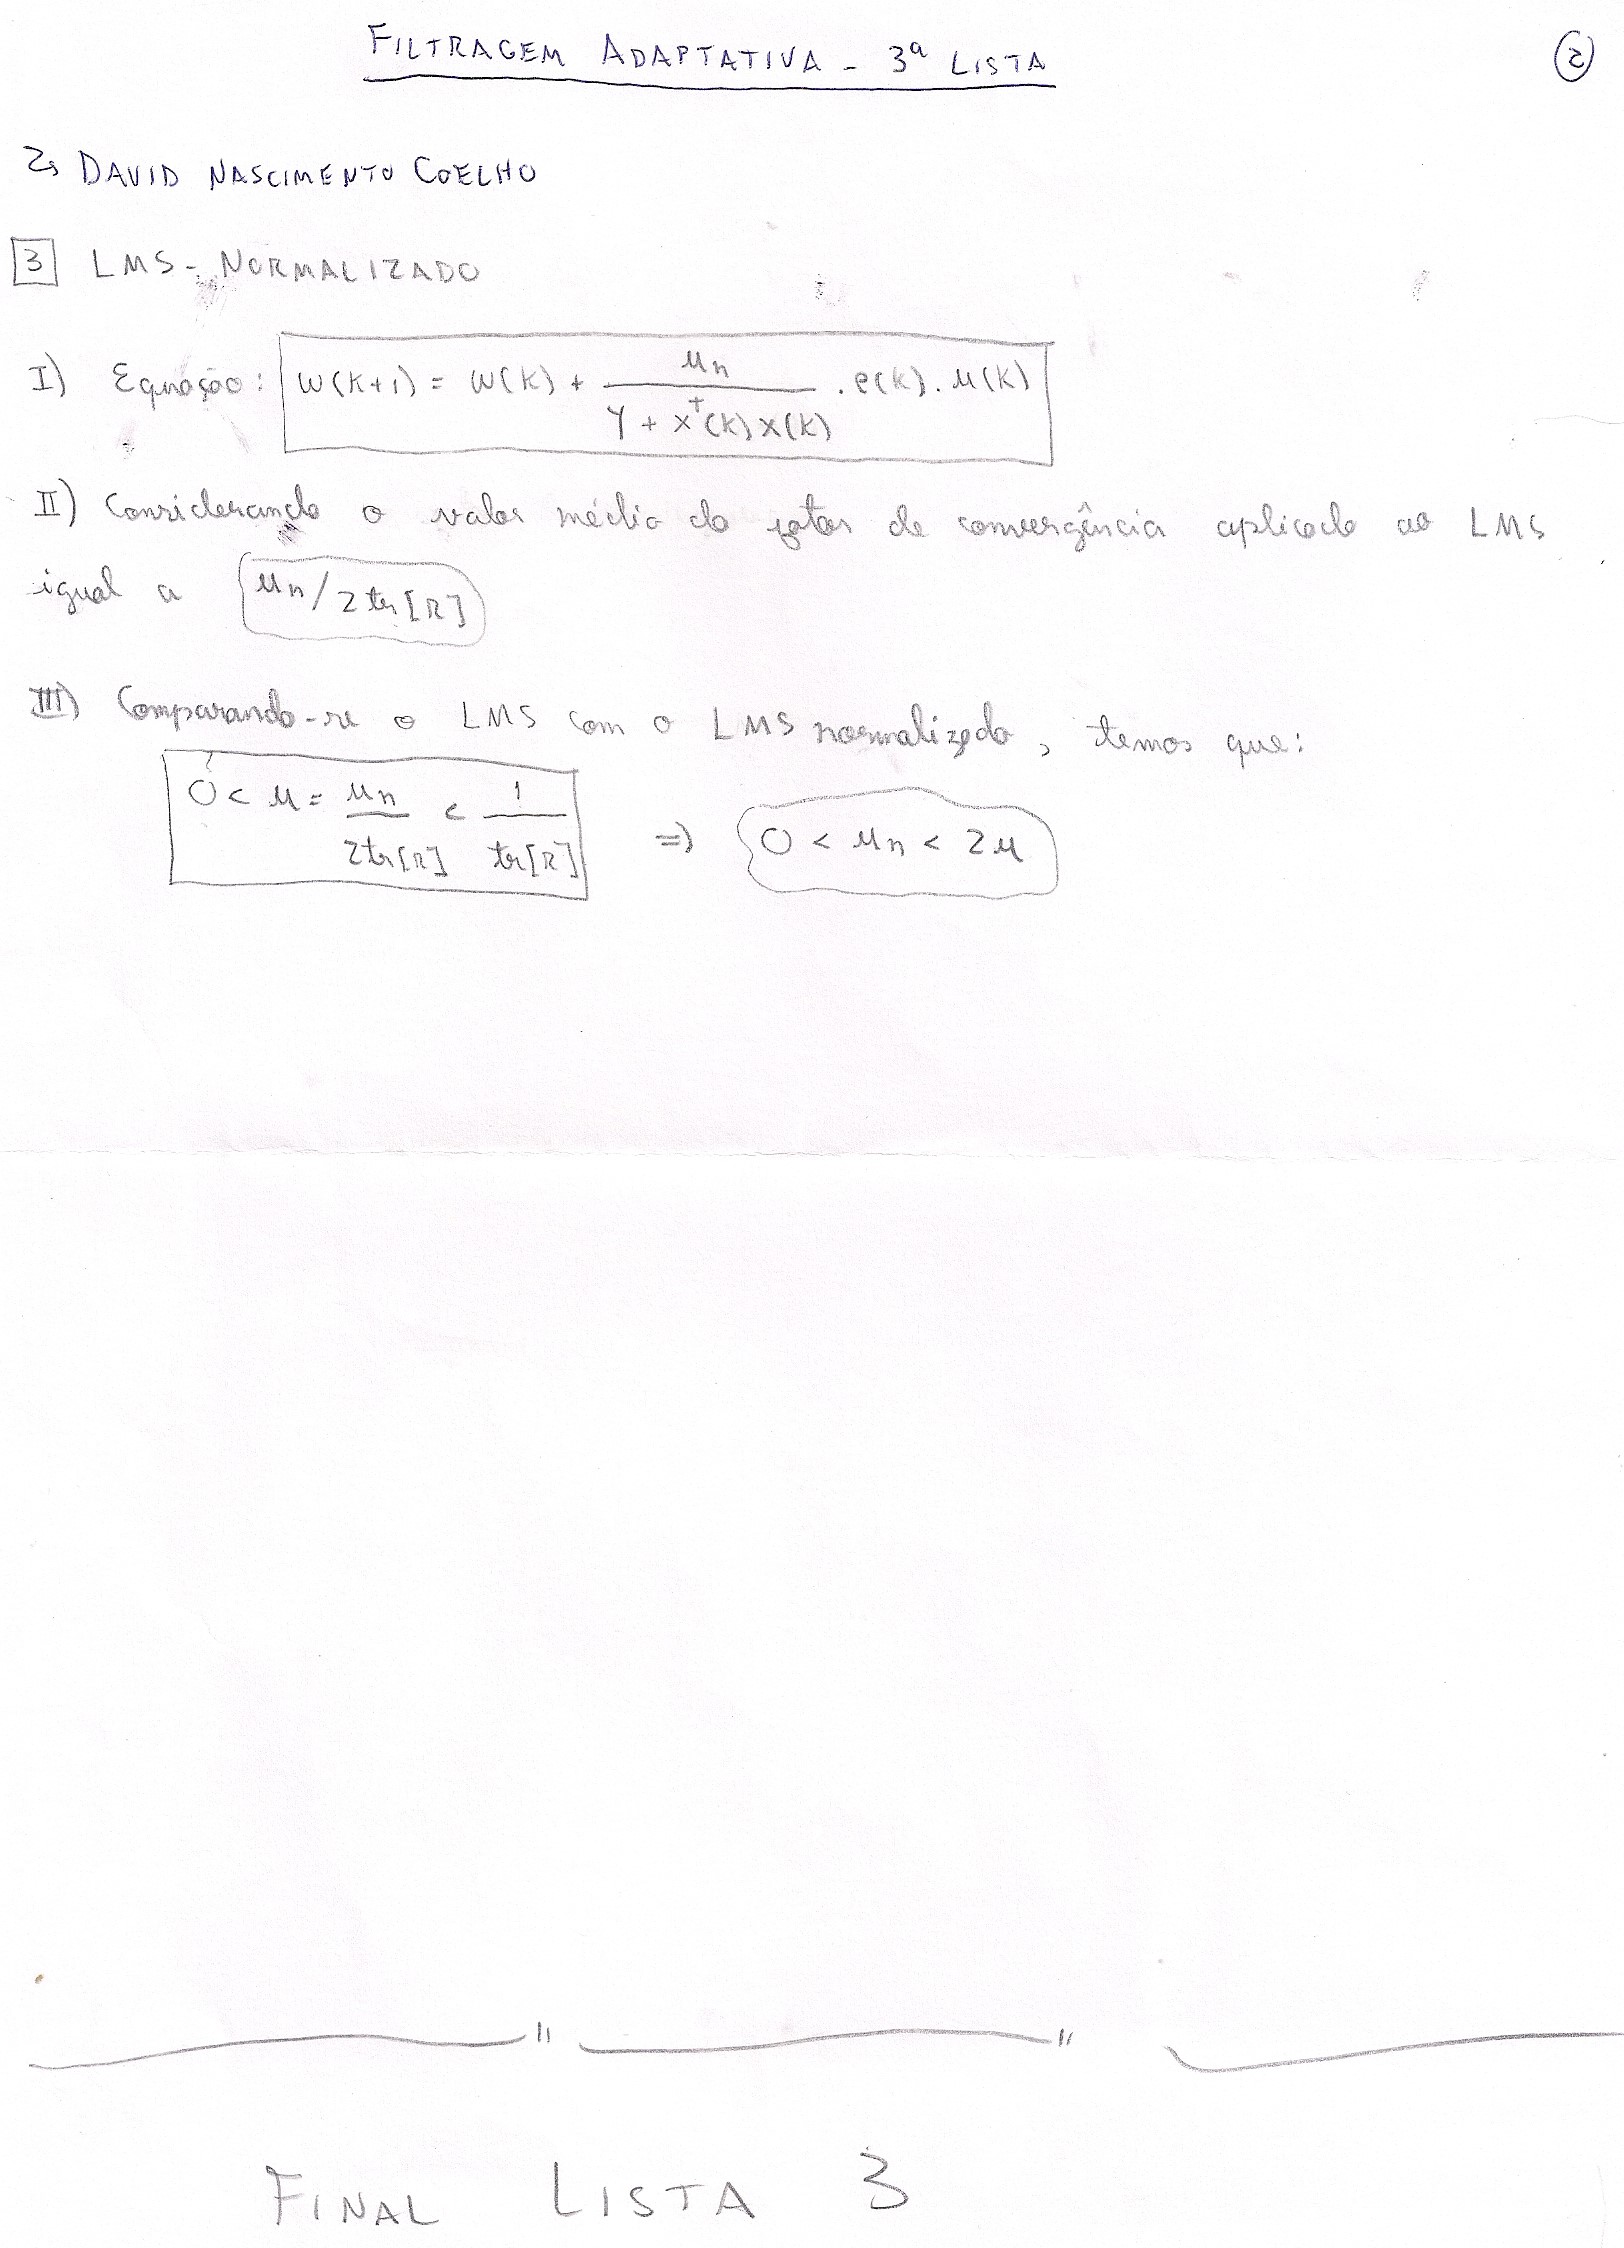 FILTRAGEM ADAPTATIVA - 3ª LISTA
2
↳ DAVID NASCIMENTO COELHO
3 LMS - NORMALIZADO
I) Equação: w(k+1) = w(k) + μn / (γ + x^T(k) x(k)) . e(k) . μ(k)
II) Considerando o valor médio do fator de convergência aplicado ao LMS
igual a μn/2tr[R]
III) Comparando-se o LMS com o LMS normalizado, temos que:
0 < μ = μn / 2tr[R] < 1 / tr[R] => 0 < μn < 2μ
FINAL LISTA 3